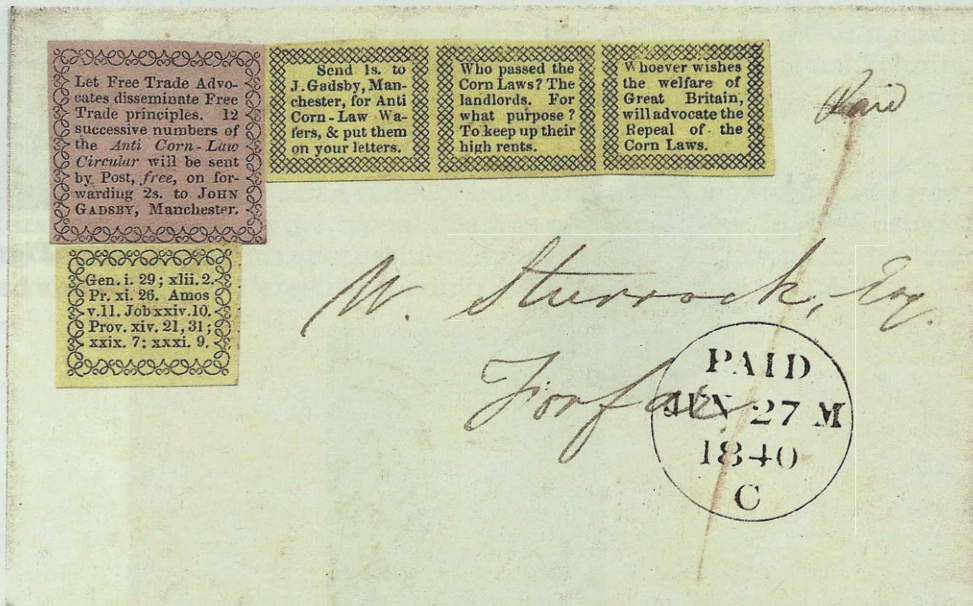 Let Free Trade Advo-
cates disseminate Free
Trade principles. 12
successive numbers of
the Anti Corn-Law
Circular will be sent
by Post, free, on for-
warding 2s. to JOHN
GADSBY, Manchester.
Send 1s. to
J. Gadsby, Man-
chester, for Anti
Corn-Law Wa-
fers, & put them
on your letters.
Who passed the
Corn Laws? The
landlords. For
what purpose?
To keep up their
high rents.
Whoever wishes
the welfare of
Great Britain,
will advocate the
Repeal of the
Corn Laws.
Paid
Gen. i. 29; xlii. 2.
Pr. xi. 26. Amos
v. 11. Job xxiv. 10.
Prov. xiv. 21, 31;
xxix. 7; xxxi. 9.
W. Sturrock, Esq.
Forfar
PAID
JUN 27 M
1840
C